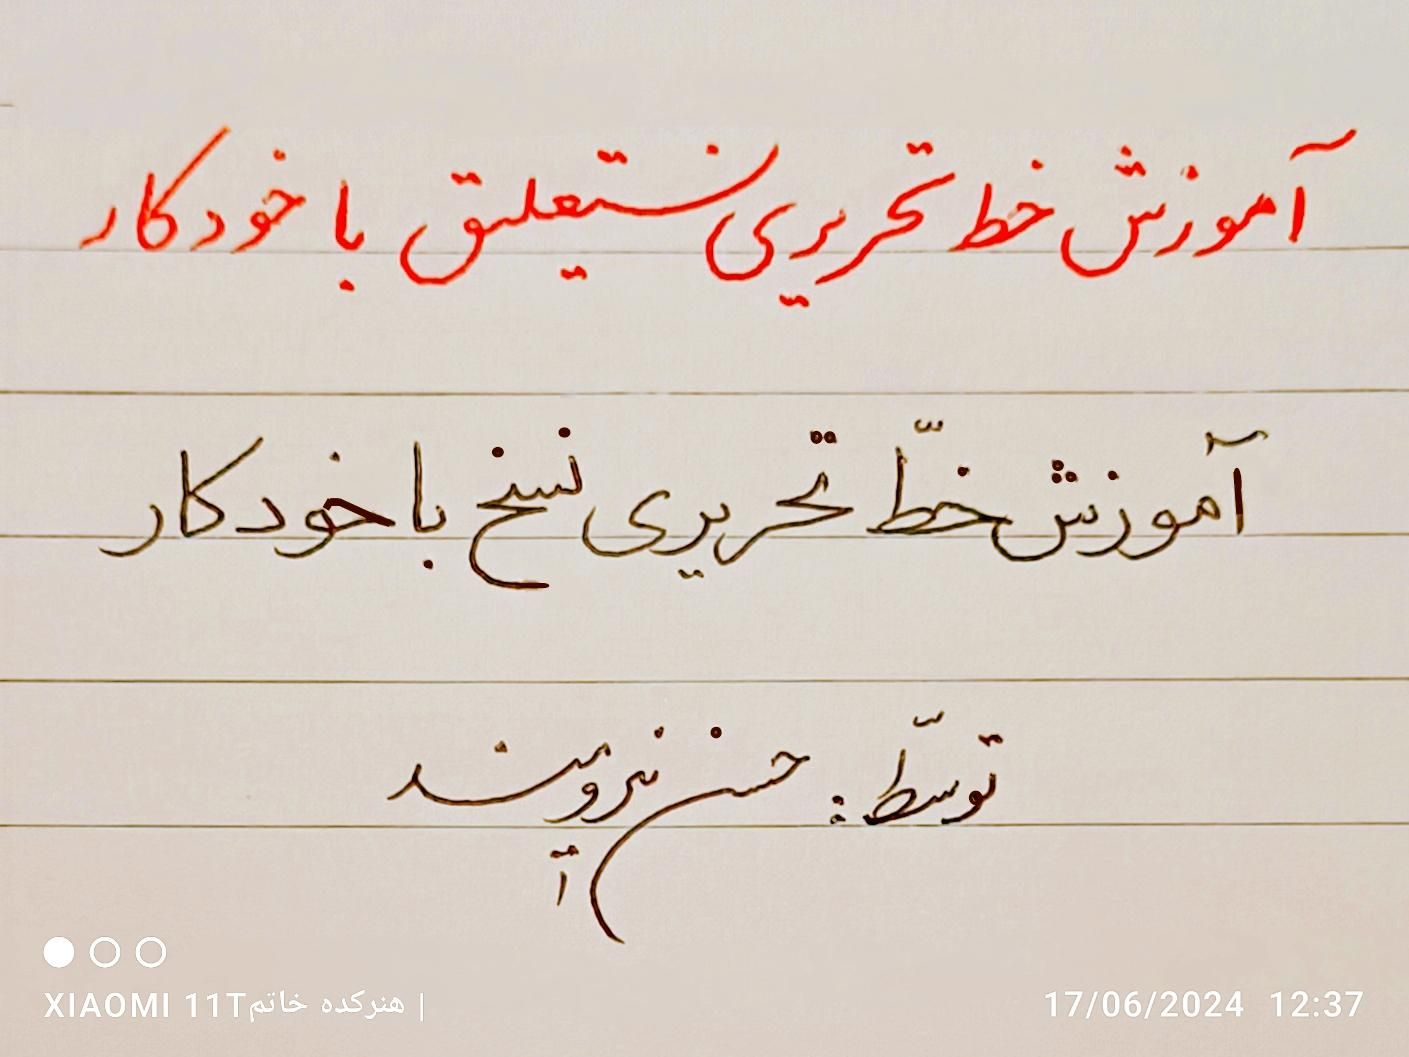 آموزش خط تحریری نستعلیق با خودکار
آموزش خطّ تحریری نسخ با خودکار
توسّط: حسن نیرومند
XIAOMI 11T هنرکده خاتم |
17/06/2024 12:37